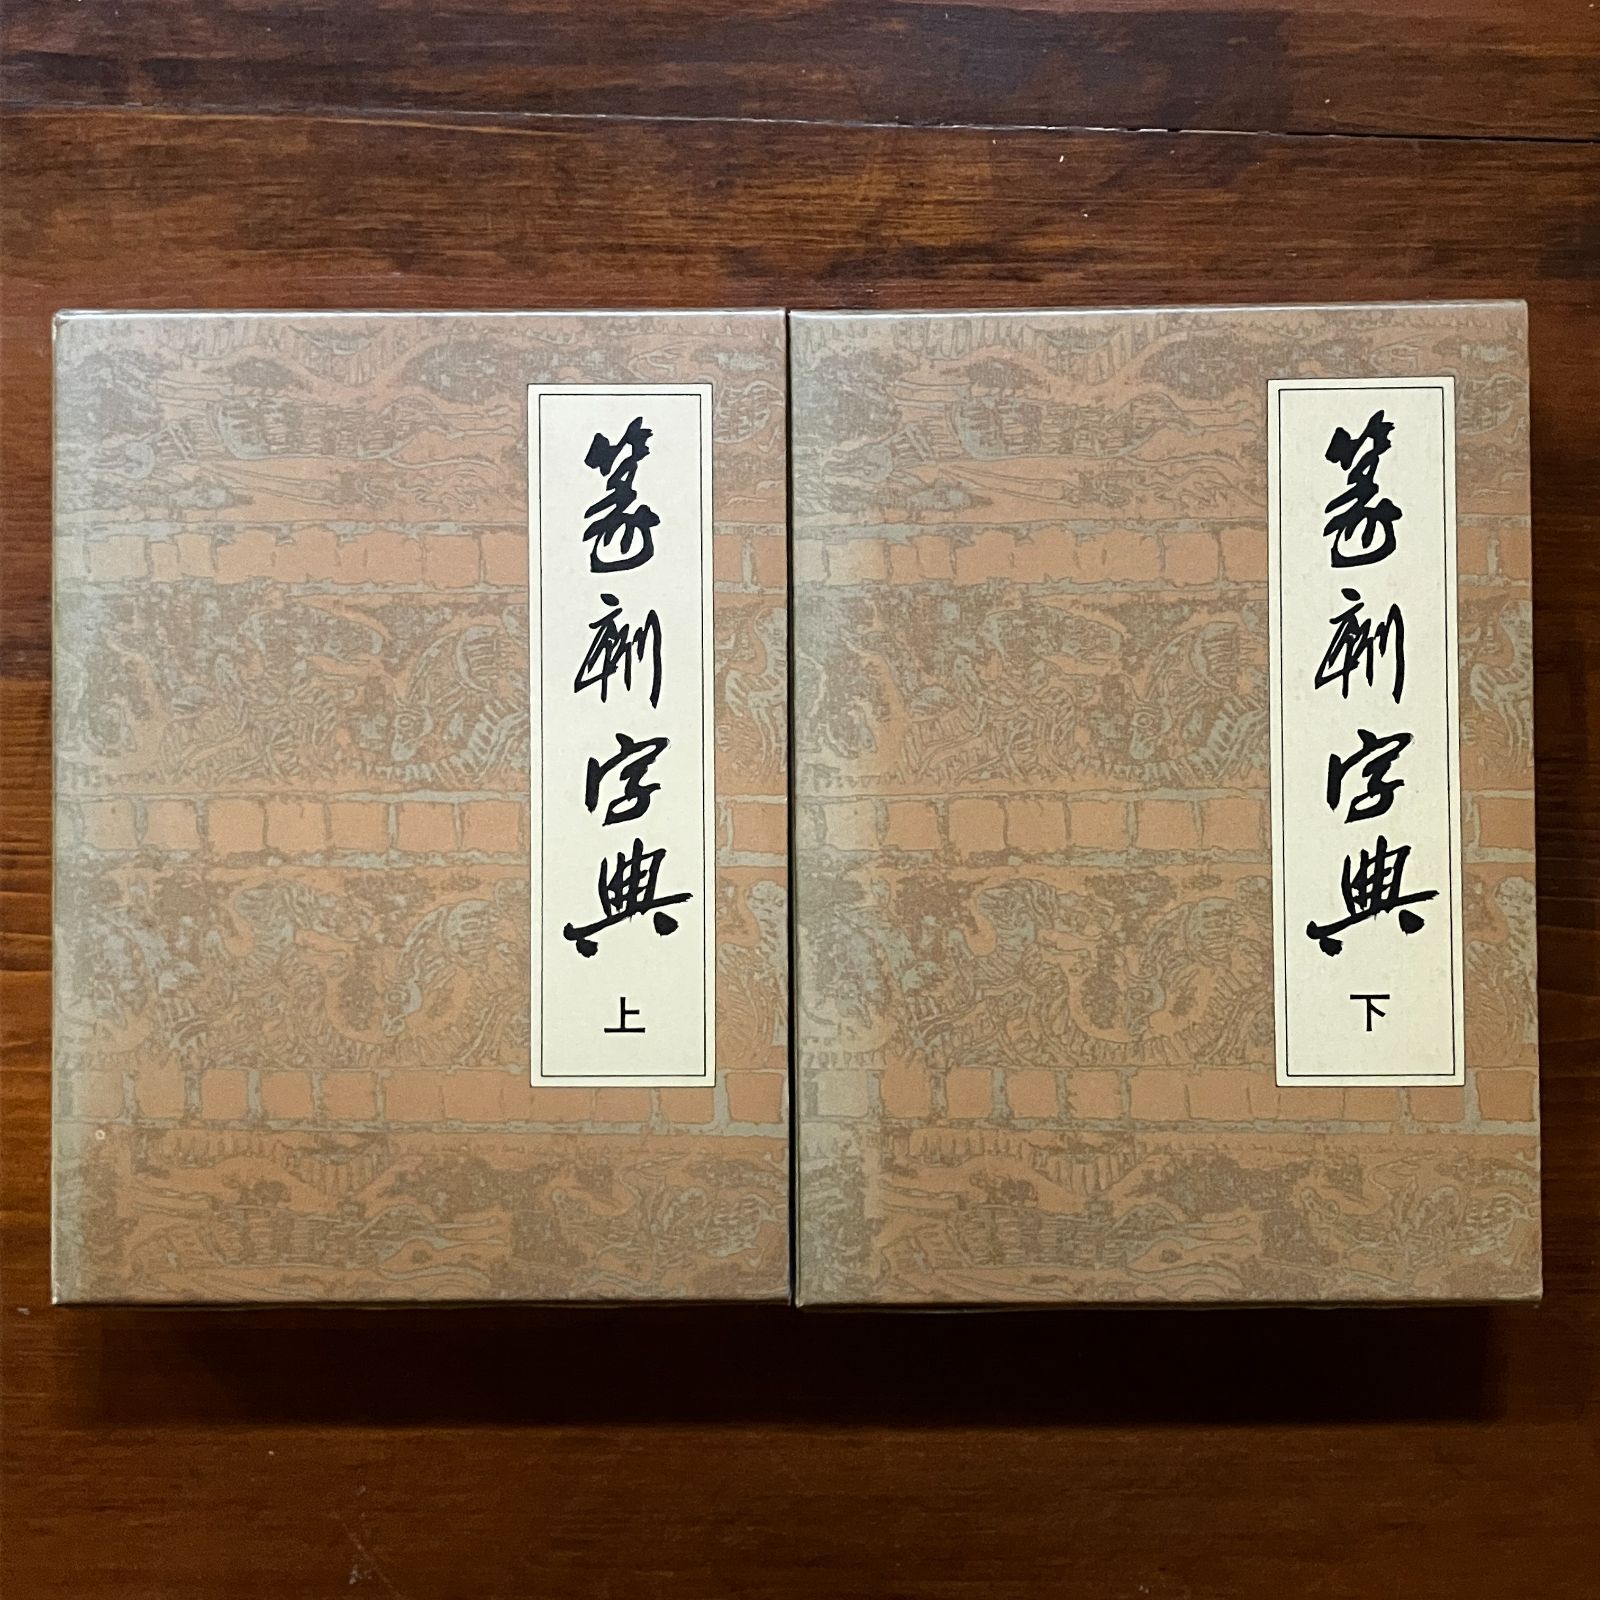 篆刻字典
上
篆刻字典
下